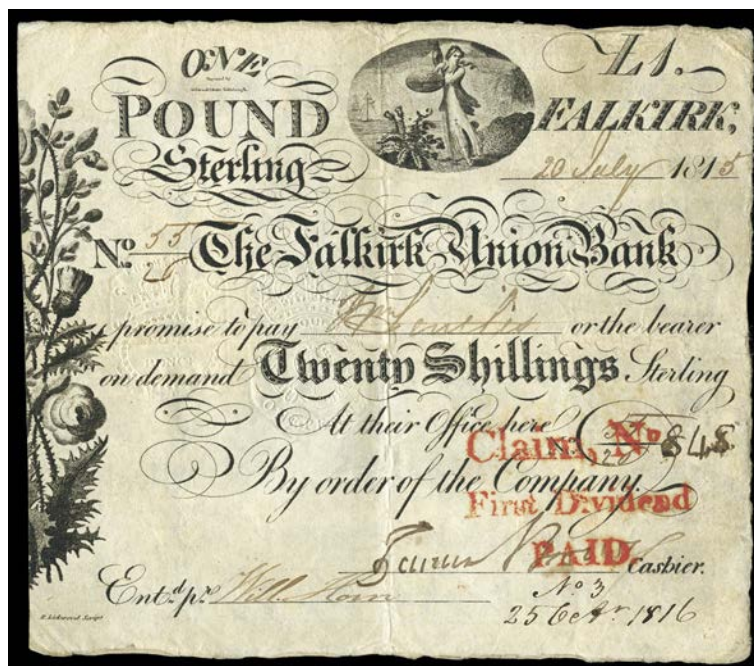 ONE
POUND
Sterling
£1.
FALKIRK,
20 July 1815
No. 55/25 The Falkirk Union Bank
promise to pay or the bearer
on demand Twenty Shillings Sterling
At their Office here No. 55/25
Claim, No 848
By order of the Company.
First Dividend
PAID
Cashier.
Ent.d p.r Will. Horn
No 3
25 Octr. 1816